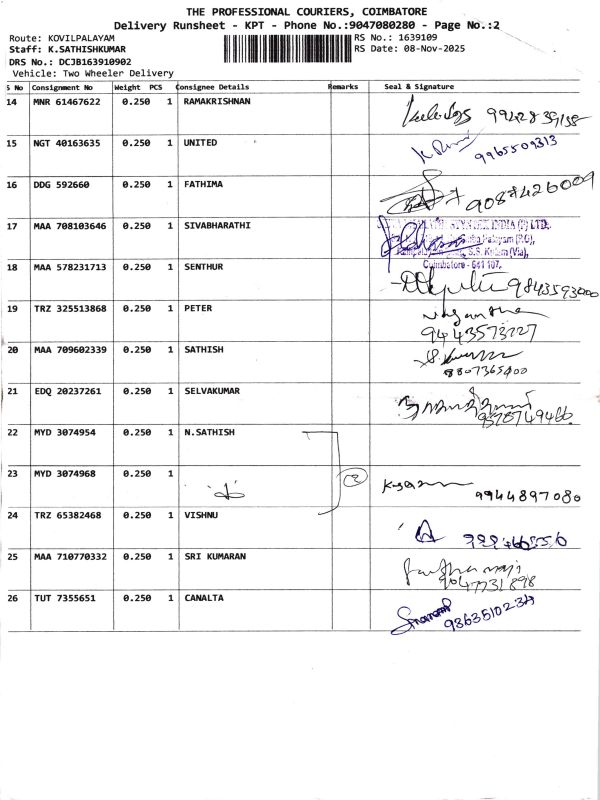 THE PROFESSIONAL COURIERS, COIMBATORE
Delivery Runsheet - KPT - Phone No.:9047080280 - Page No.:2
Route: KOVILPALAYAM
RS No.: 1639109
Staff: K.SATHISHKUMAR
RS Date: 08-Nov-2025
DRS No.: DCJB163910902
Vehicle: Two Wheeler Delivery
S No Consignment No Weight PCS Consignee Details Remarks Seal & Signature
14 MNR 61467622 0.250 1 RAMAKRISHNAN
15 NGT 40163635 0.250 1 UNITED 9965509313
16 DDG 592660 0.250 1 FATHIMA 9087426009
17 MAA 708103646 0.250 1 SIVABHARATHI
INDIA (P) LTD.,
Palayam (P.O),
S.S. Kulam (Via),
Coimbatore - 641 107.
18 MAA 578231713 0.250 1 SENTHUR 9843593000
19 TRZ 325513868 0.250 1 PETER
9443573227
20 MAA 709602339 0.250 1 SATHISH
8807365400
21 EDQ 20237261 0.250 1 SELVAKUMAR
22 MYD 3074954 0.250 1 N.SATHISH
23 MYD 3074968 0.250 1 2 9944897080
24 TRZ 65382468 0.250 1 VISHNU
25 MAA 710770332 0.250 1 SRI KUMARAN
9047731898
26 TUT 7355651 0.250 1 CANALTA 9363510234